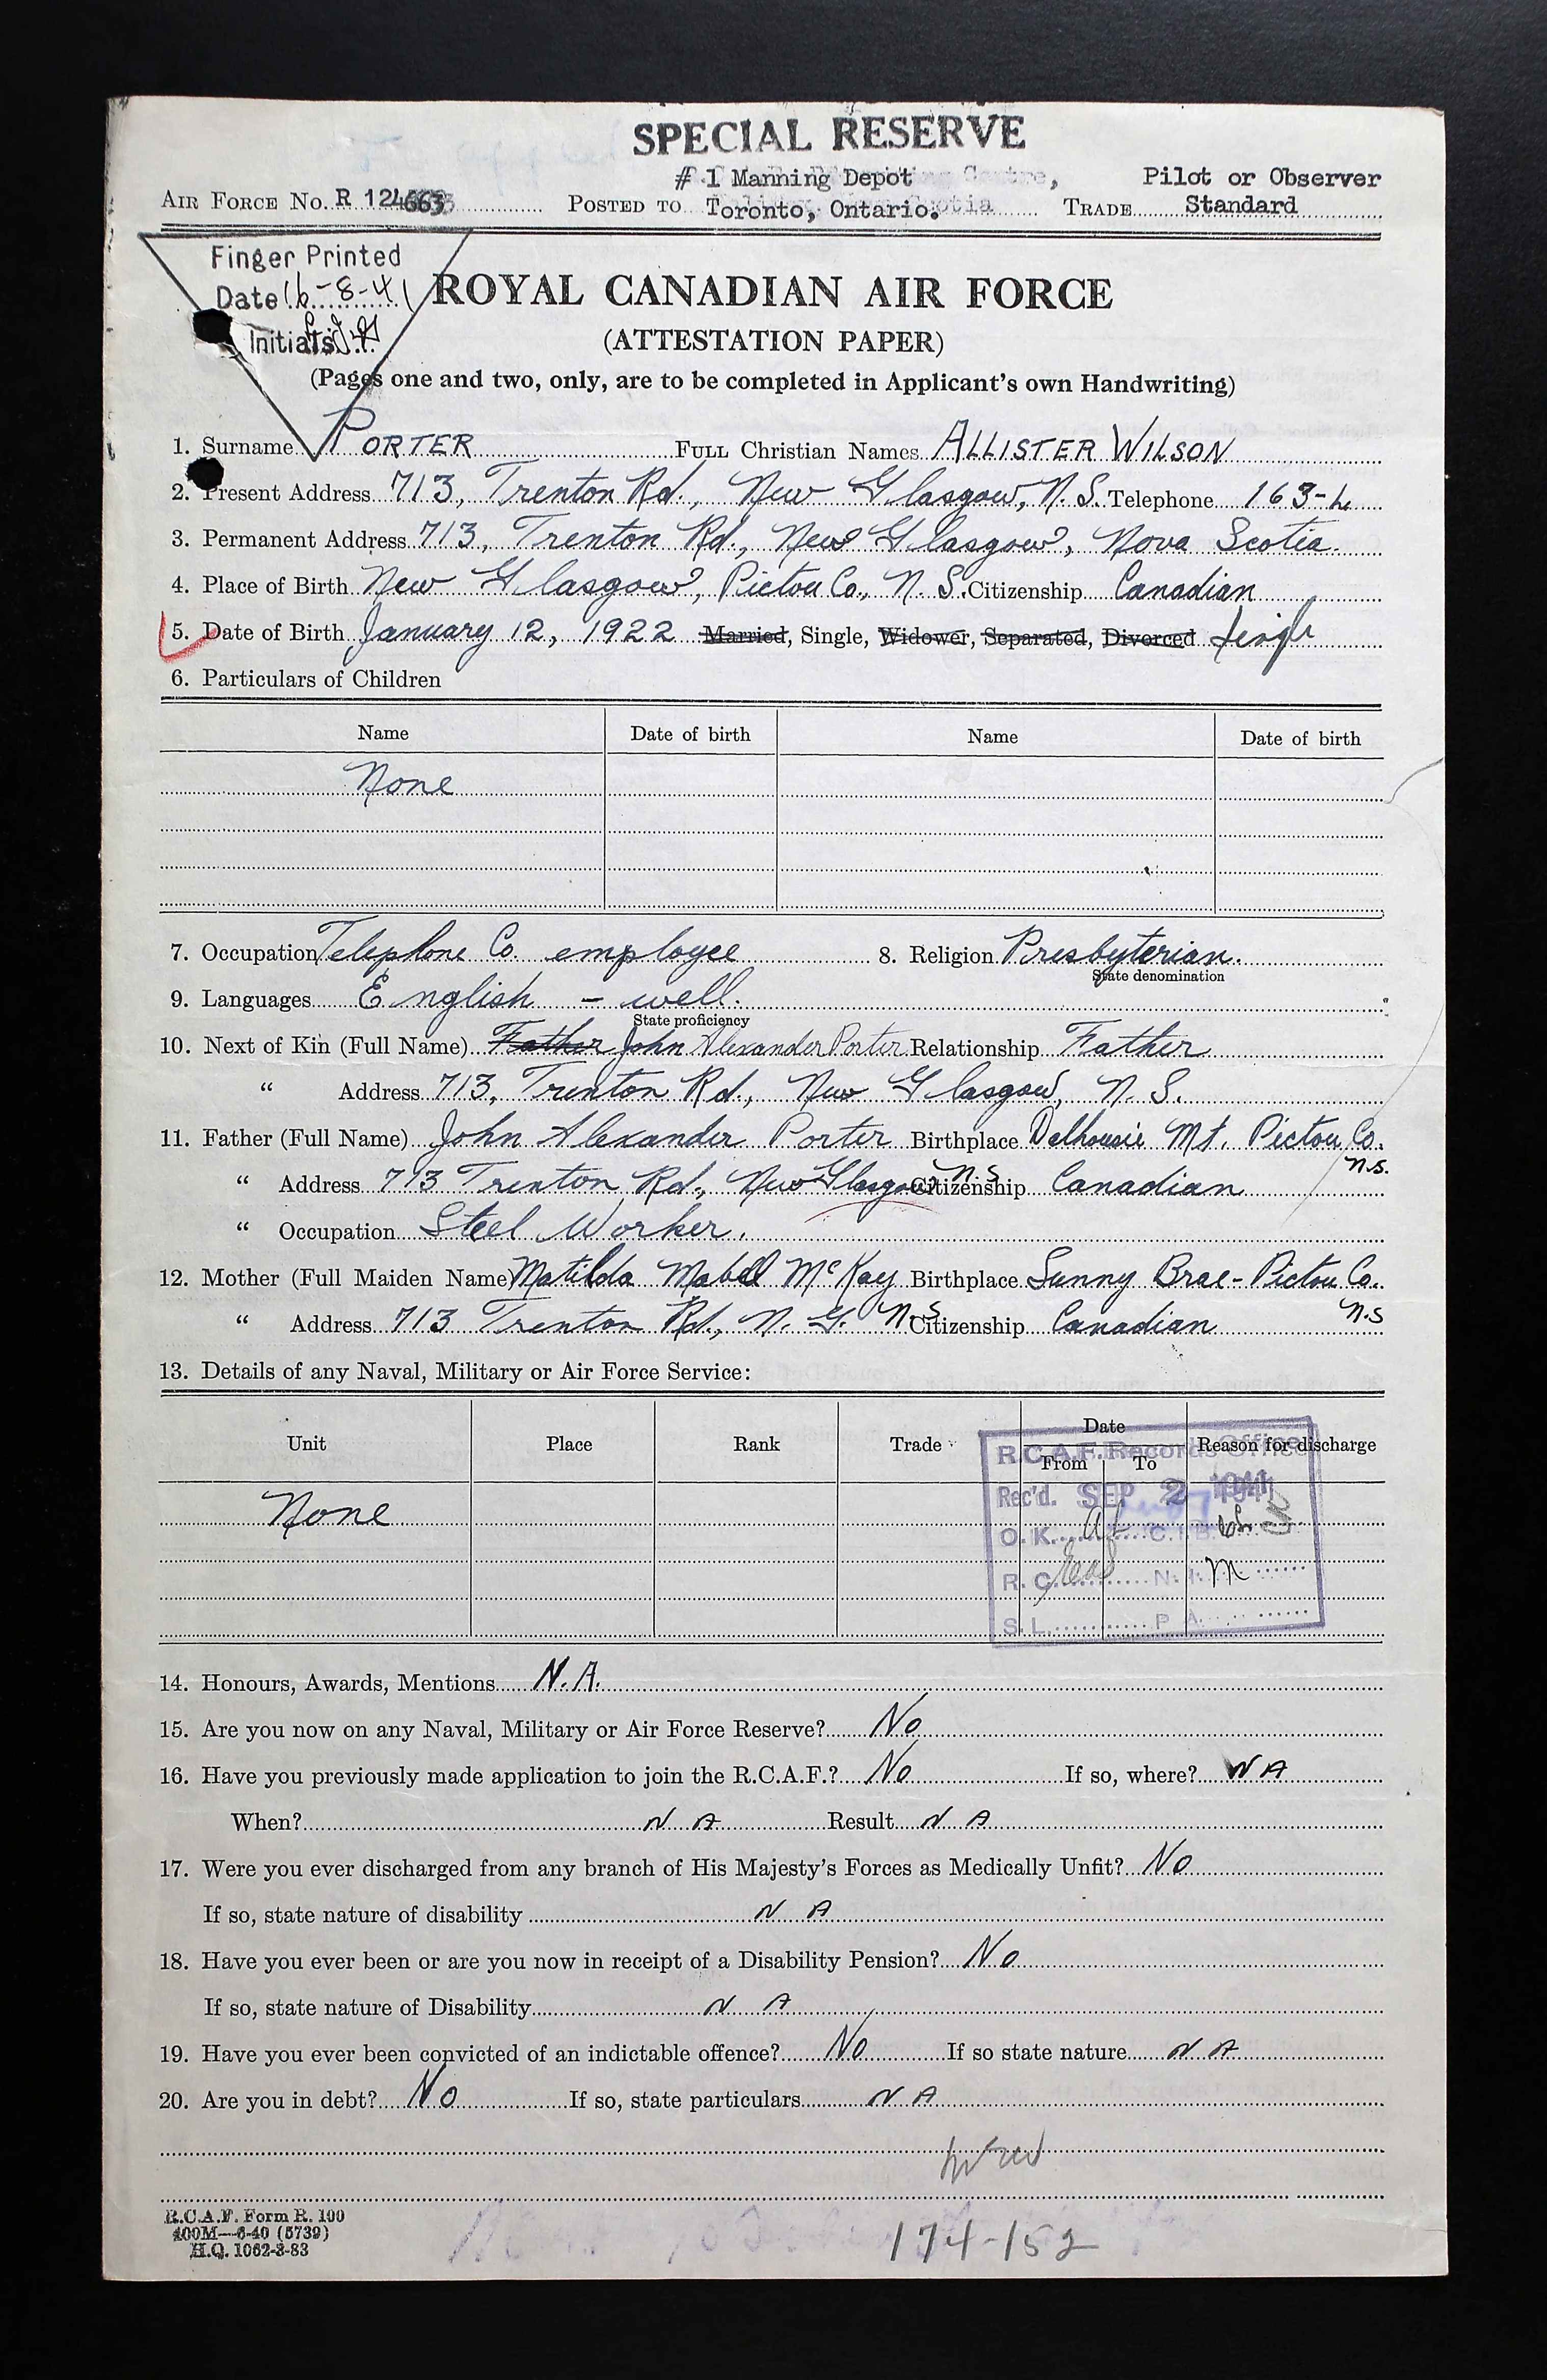 SPECIAL RESERVE
# 1 Manning Depot Pilot or Observer
AIR FORCE No. R 124663 POSTED TO Toronto, Ontario. TRADE Standard
Finger Printed
Date 16-8-41
Initials
ROYAL CANADIAN AIR FORCE
(ATTESTATION PAPER)
(Pages one and two, only, are to be completed in Applicant's own Handwriting)
1. Surname PORTER FULL Christian Names ALLISTER WILSON
2. Present Address 713, Trenton Rd., New Glasgow, N.S. Telephone 163-
3. Permanent Address 713, Trenton Rd., New Glasgow, Nova Scotia.
4. Place of Birth New Glasgow, Pictou Co., N.S. Citizenship Canadian
5. Date of Birth January 12, 1922 Married, Single, Widower, Separated, Divorced Single
6. Particulars of Children
Name Date of birth Name Date of birth
None
7. Occupation Telephone Co. employee 8. Religion Presbyterian.
State denomination
9. Languages English - well.
State proficiency
10. Next of Kin (Full Name) Father John Alexander Porter Relationship Father
" Address 713, Trenton Rd., New Glasgow, N.S.
11. Father (Full Name) John Alexander Porter Birthplace Dalhousie Mt. Pictou Co.
N.S.
" Address 713 Trenton Rd., New Glasgow N.S Citizenship Canadian
" Occupation Steel Worker.
12. Mother (Full Maiden Name) Matilda Mabel McKay Birthplace Sunny Brae - Pictou Co.
N.S
" Address 713 Trenton Rd., N.G. N.S. Citizenship Canadian
13. Details of any Naval, Military or Air Force Service:
Unit Place Rank Trade Date From To Reason for discharge
None
R.C.A.F. Records Office
Rec'd. SEP 2 1941
O.K. C.I.B.
R.C. N. M
S.L. P.A.
14. Honours, Awards, Mentions N.A.
15. Are you now on any Naval, Military or Air Force Reserve? No
16. Have you previously made application to join the R.C.A.F.? No If so, where? NA
When? N A Result N A
17. Were you ever discharged from any branch of His Majesty's Forces as Medically Unfit? No
If so, state nature of disability N A
18. Have you ever been or are you now in receipt of a Disability Pension? No
If so, state nature of Disability N A
19. Have you ever been convicted of an indictable offence? No If so state nature N A
20. Are you in debt? No If so, state particulars N A
R.C.A.F. Form R. 100
400M—6-40 (5739)
H.Q. 1062-3-83
174-152